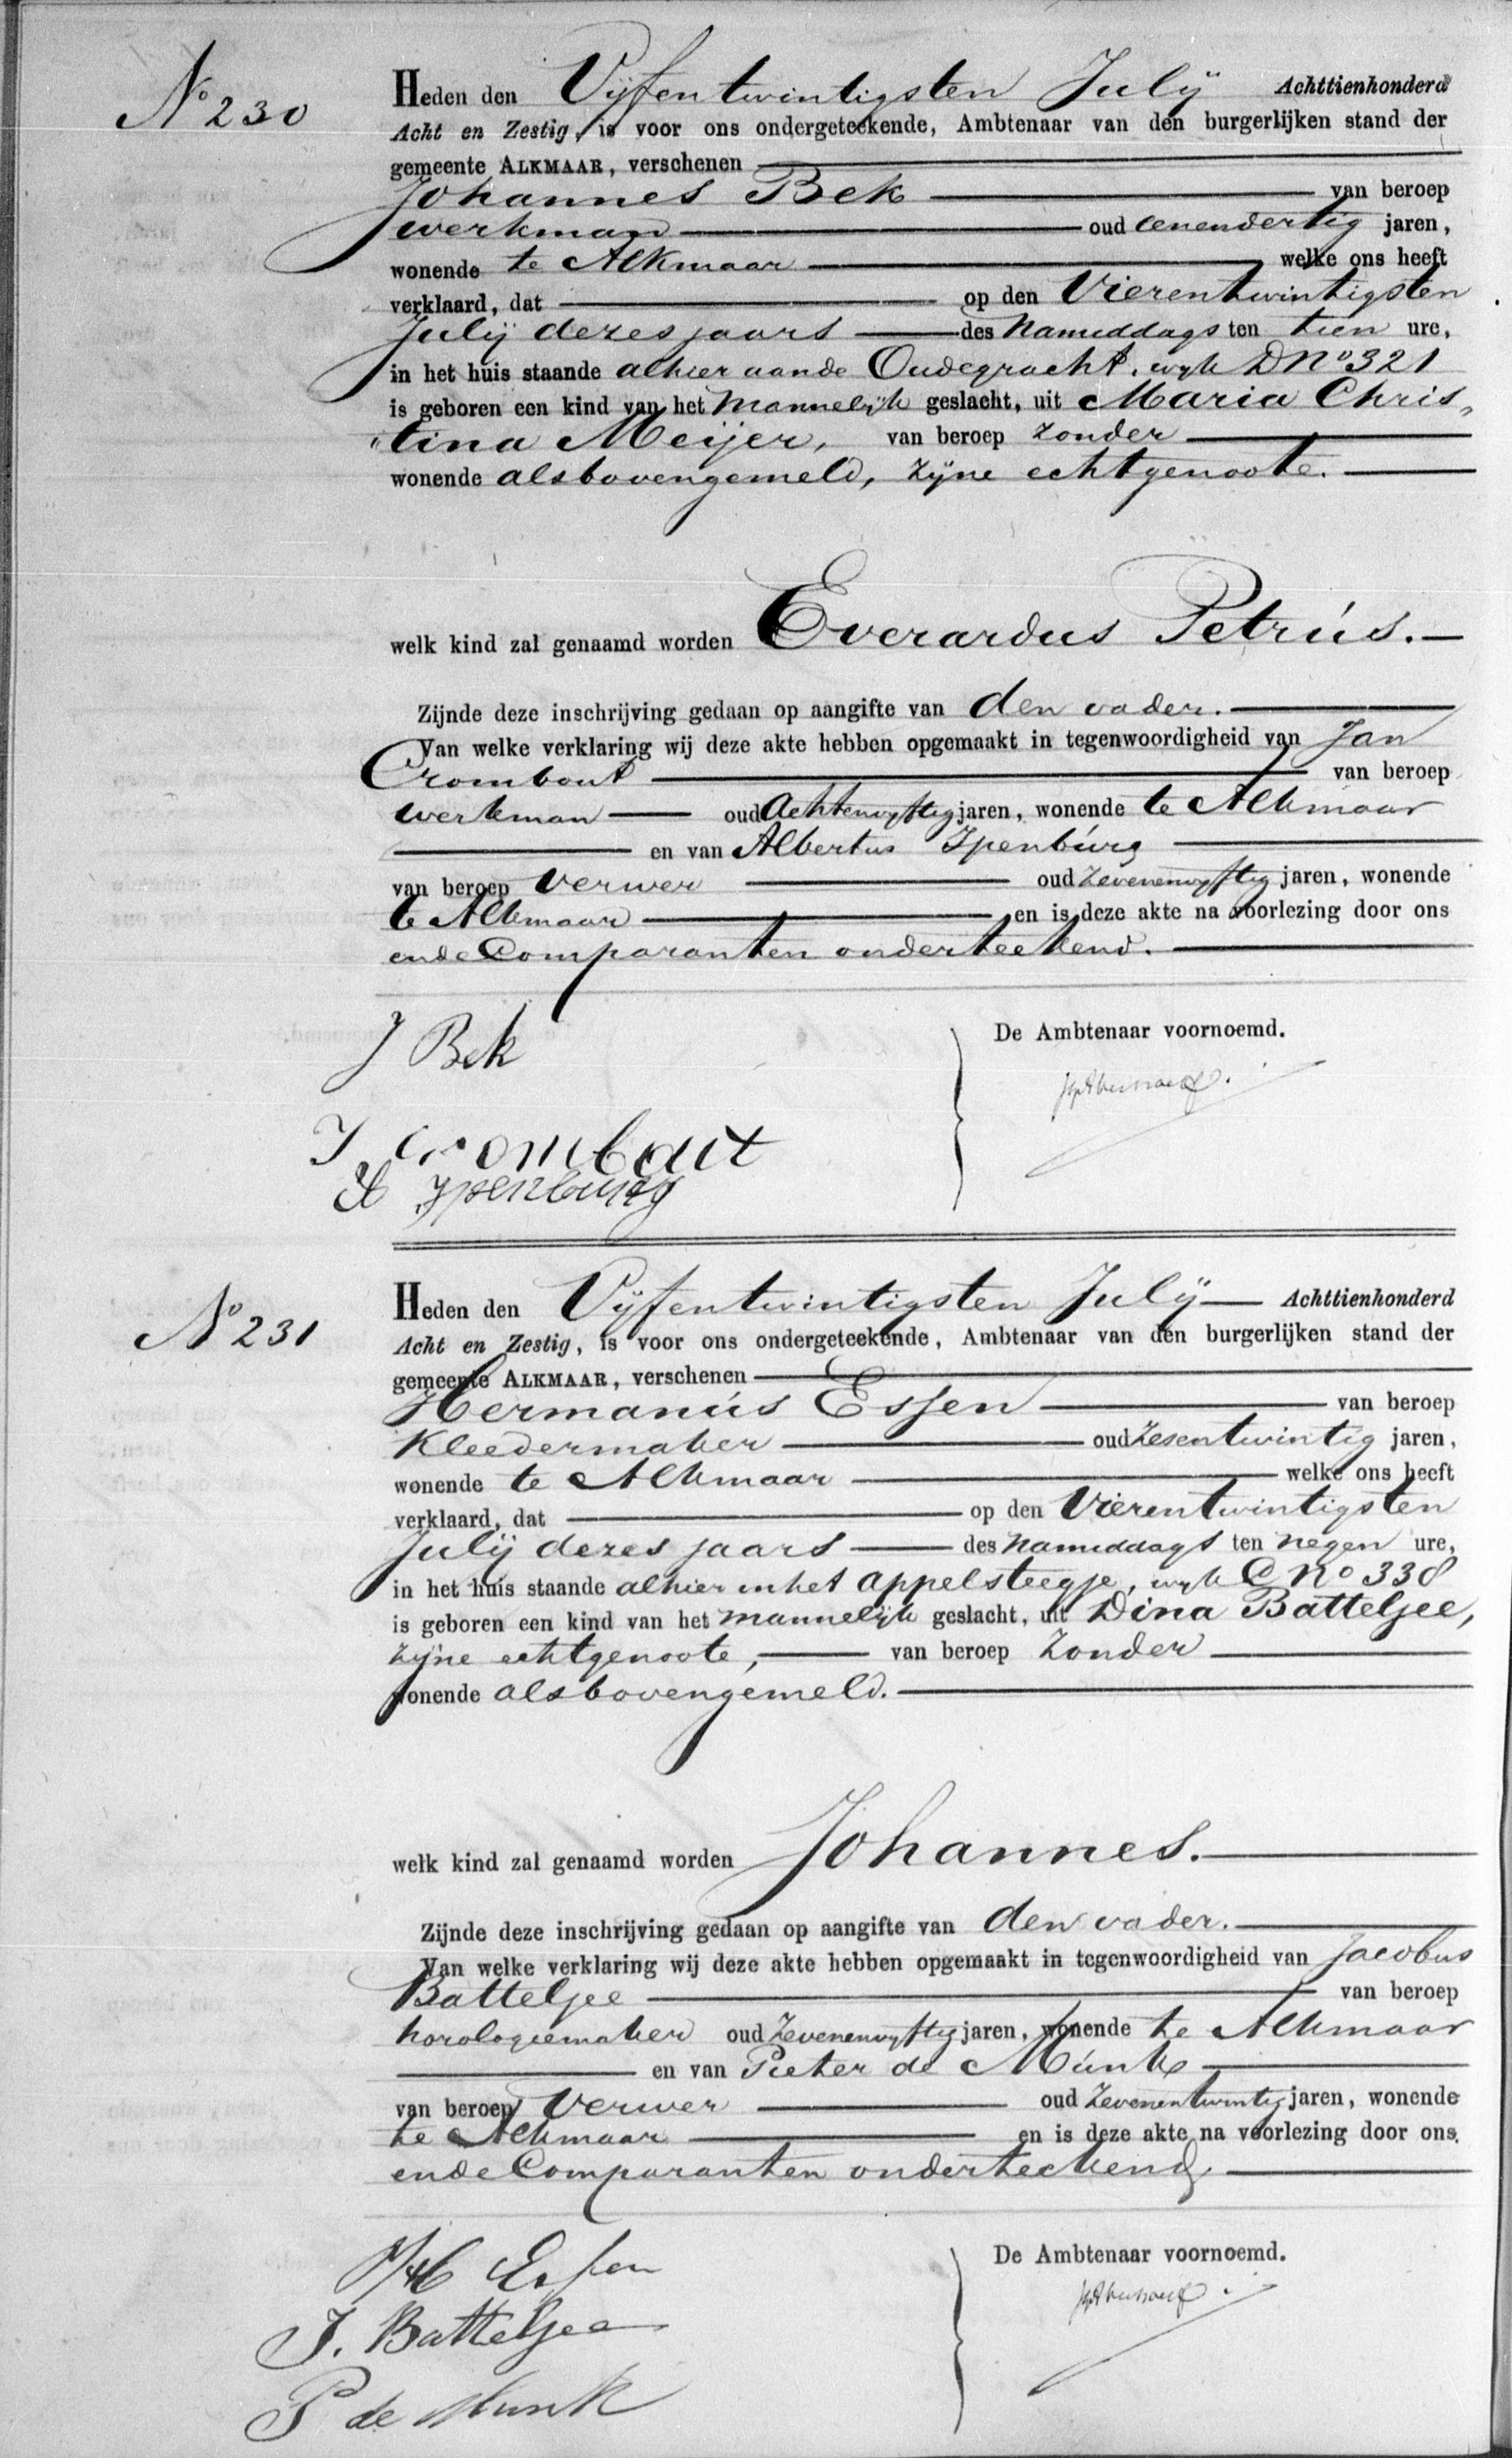 No 230
Heden den Vijfentwintigsten Julij Achttienhonderd
Acht en Zestig, is voor ons ondergeteekende, Ambtenaar van den burgerlijken stand der
gemeente ALKMAAR, verschenen
Johannes Bek van beroep
werkman oud eenendertig jaren,
wonende te Alkmaar welke ons heeft
verklaard, dat op den Vierentwintigsten
Julij dezes jaars des Namiddags ten tien ure,
in het huis staande alhier aande Oudegracht, wijk D No 321
is geboren een kind van het Mannelijk geslacht, uit Maria Chris„
„tina Meijer, van beroep Zonder
wonende als bovengemeld, Zijne echtgenoote.
welk kind zal genaamd worden Everardus Petrus.
Zijnde deze inschrijving gedaan op aangifte van den vader.
Van welke verklaring wij deze akte hebben opgemaakt in tegenwoordigheid van Jan
Crombout van beroep
werkman oud Achtenvijftig jaren, wonende te Alkmaar
en van Albertus Ypenburg
van beroep Verwer oud Zevenenvijftig jaren, wonende
te Alkmaar en is deze akte na voorlezing door ons
en de Comparanten onderteekend.
J Bek
De Ambtenaar voornoemd.
J Crombout
A Ypenburg
No 231
Heden den Vijfentwintigsten Julij Achttienhonderd
Acht en Zestig, is voor ons ondergeteekende, Ambtenaar van den burgerlijken stand der
gemeente ALKMAAR, verschenen
Hermanus Essen van beroep
Kleedermaker oud Zesentwintig jaren,
wonende te Alkmaar welke ons heeft
verklaard, dat op den Vierentwintigsten
Julij dezes jaars des Namiddags ten negen ure,
in het huis staande alhier in het Appelsteegje, wijk C No 338
is geboren een kind van het mannelijk geslacht, uit Dina Batteljee,
Zijne echtgenoote, van beroep Zonder
wonende als bovengemeld.
welk kind zal genaamd worden Johannes.
Zijnde deze inschrijving gedaan op aangifte van den vader.
Van welke verklaring wij deze akte hebben opgemaakt in tegenwoordigheid van Jacobus
Batteljee van beroep
horologiemaker oud Zevenenvijftig jaren, wonende te Alkmaar
en van Pieter de Munk
van beroep Verwer oud Zevenentwintig jaren, wonende
te Alkmaar en is deze akte na voorlezing door ons
en de Comparanten onderteekend.
H Essen
De Ambtenaar voornoemd.
J. Batteljee
P de Munk